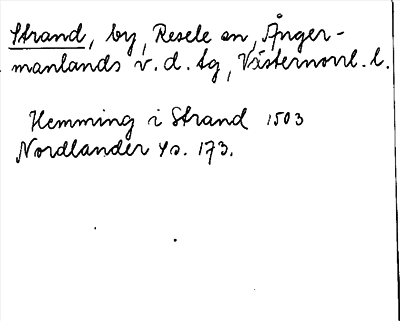 Strand, by, Resele sn, Ånger-
manlands v. d. tg, Västernorrl. l.
Hemming i Strand 1503
Nordlander s. 173.